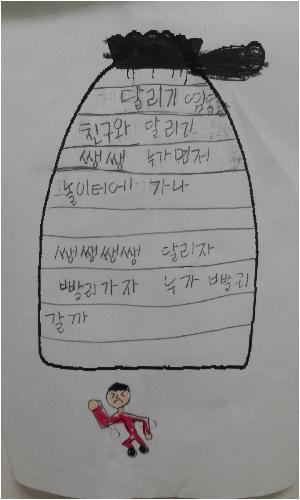 달리기
친구와 달리기
쌩쌩 누가 먼저
놀이터에 가나
쌩쌩쌩쌩 달리자
빨리가자 누가 빨리
갈까